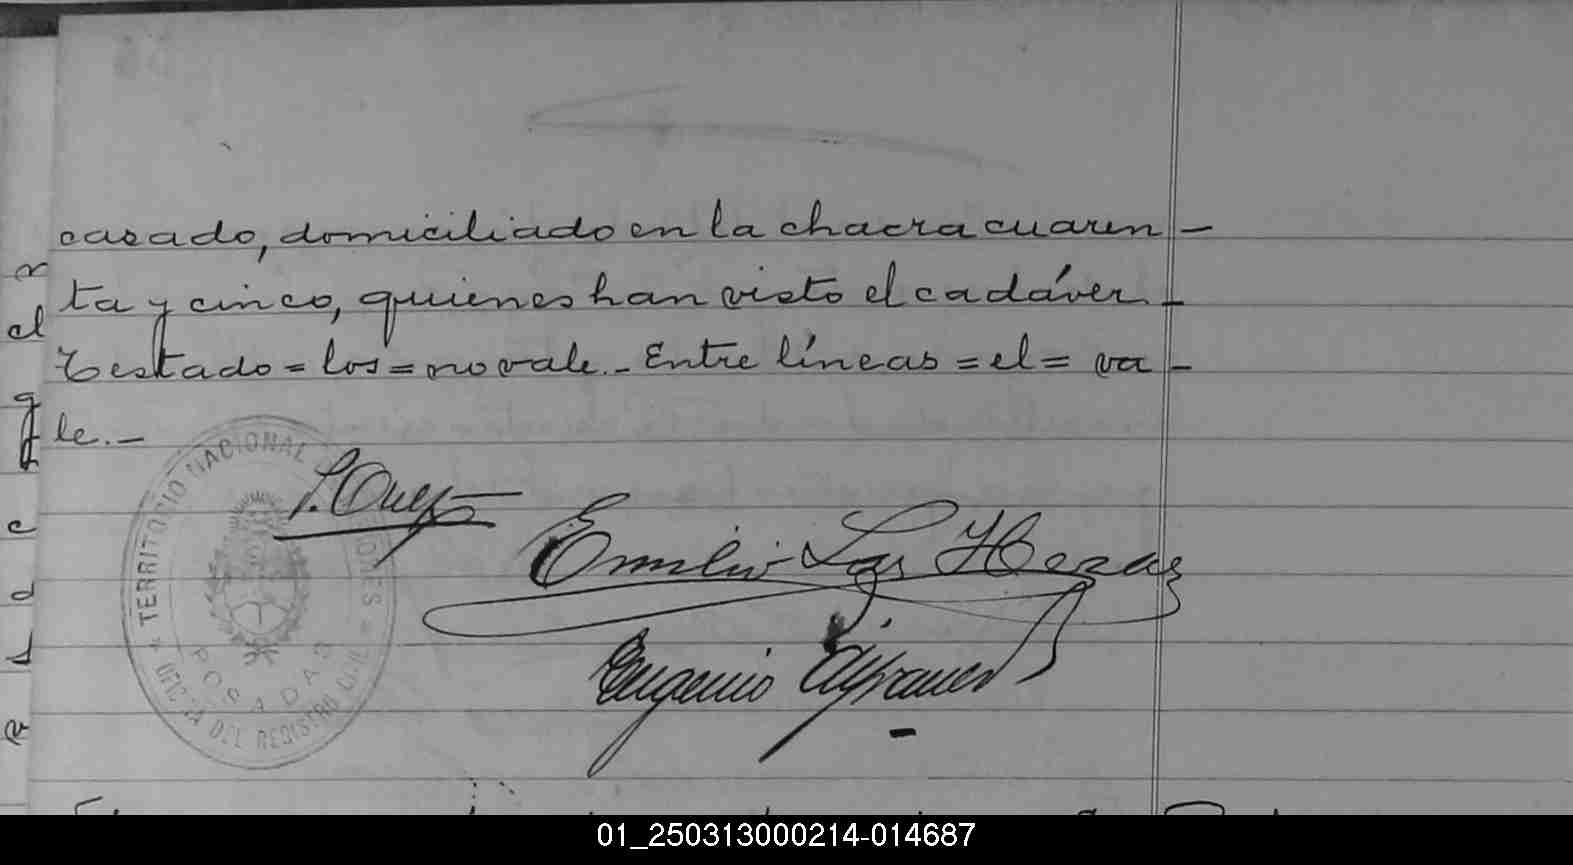 casado, domiciliado en la chacra cuaren-
ta y cinco, quienes han visto el cadáver.-
Testado=los=no vale.-Entre líneas=el=va-
le.-
TERRITORIO NACIONAL
POSADAS
OFICINA DEL REGISTRO CIVIL
Emilio Las Heras
Eugenio
01_250313000214-014687